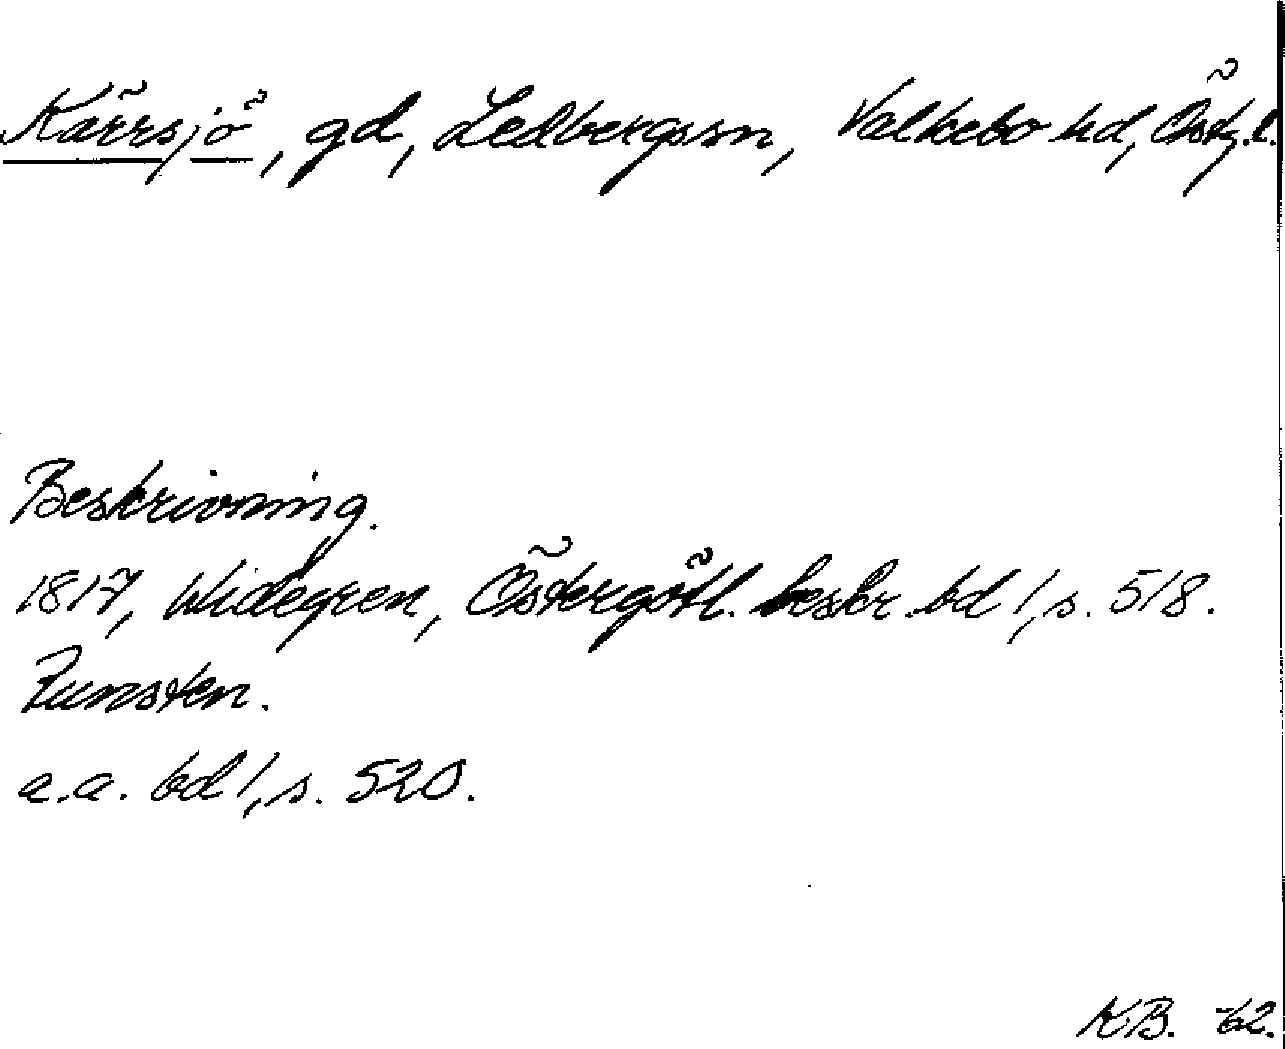 Kärrsjö, gd, Ledbergssn, Valkebo hd, Östg.l.
Beskrivning.
1817, Widegren, Östergötl. beskr. bd 1, s. 518.
Runsten.
a.a. bd 1, s. 520.
K.B. -62.